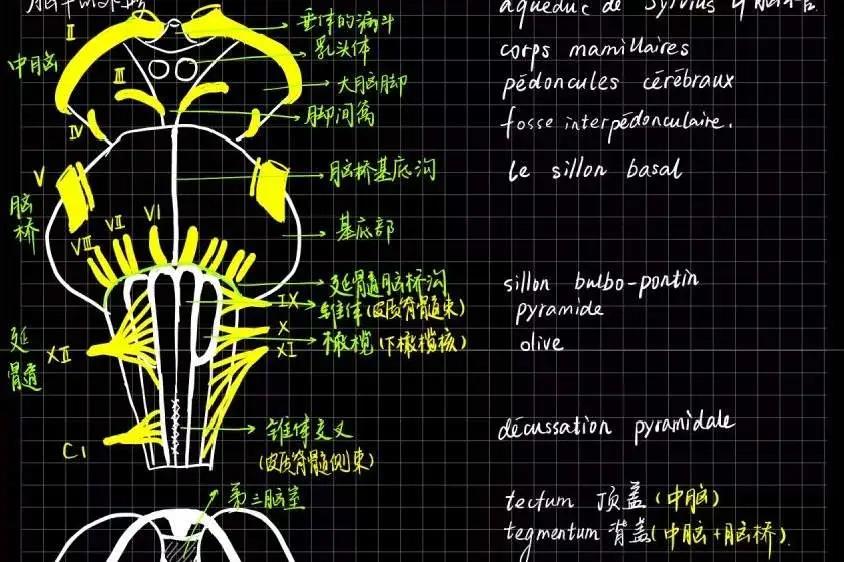 aqueduc de Sylvius
II
垂体的漏斗
中脑
乳头体
corps mamillaires
III
大脑脚
pédoncules cérébraux
IV
脚间窝
fosse interpédonculaire.
V
脑桥基底沟
le sillon basal
脑桥
VI
VII
VIII
基底部
延骨髓脑桥沟
sillon bulbo-pontin
IX
锥体(皮质脊髓束)
pyramide
X
延髓
XII
橄榄(下橄榄核)
XI
olive
C1
锥体交叉
décussation pyramidale
(皮质脊髓侧束)
第三脑室
tectum 顶盖(中脑)
tegmentum 背盖(中脑+脑桥)